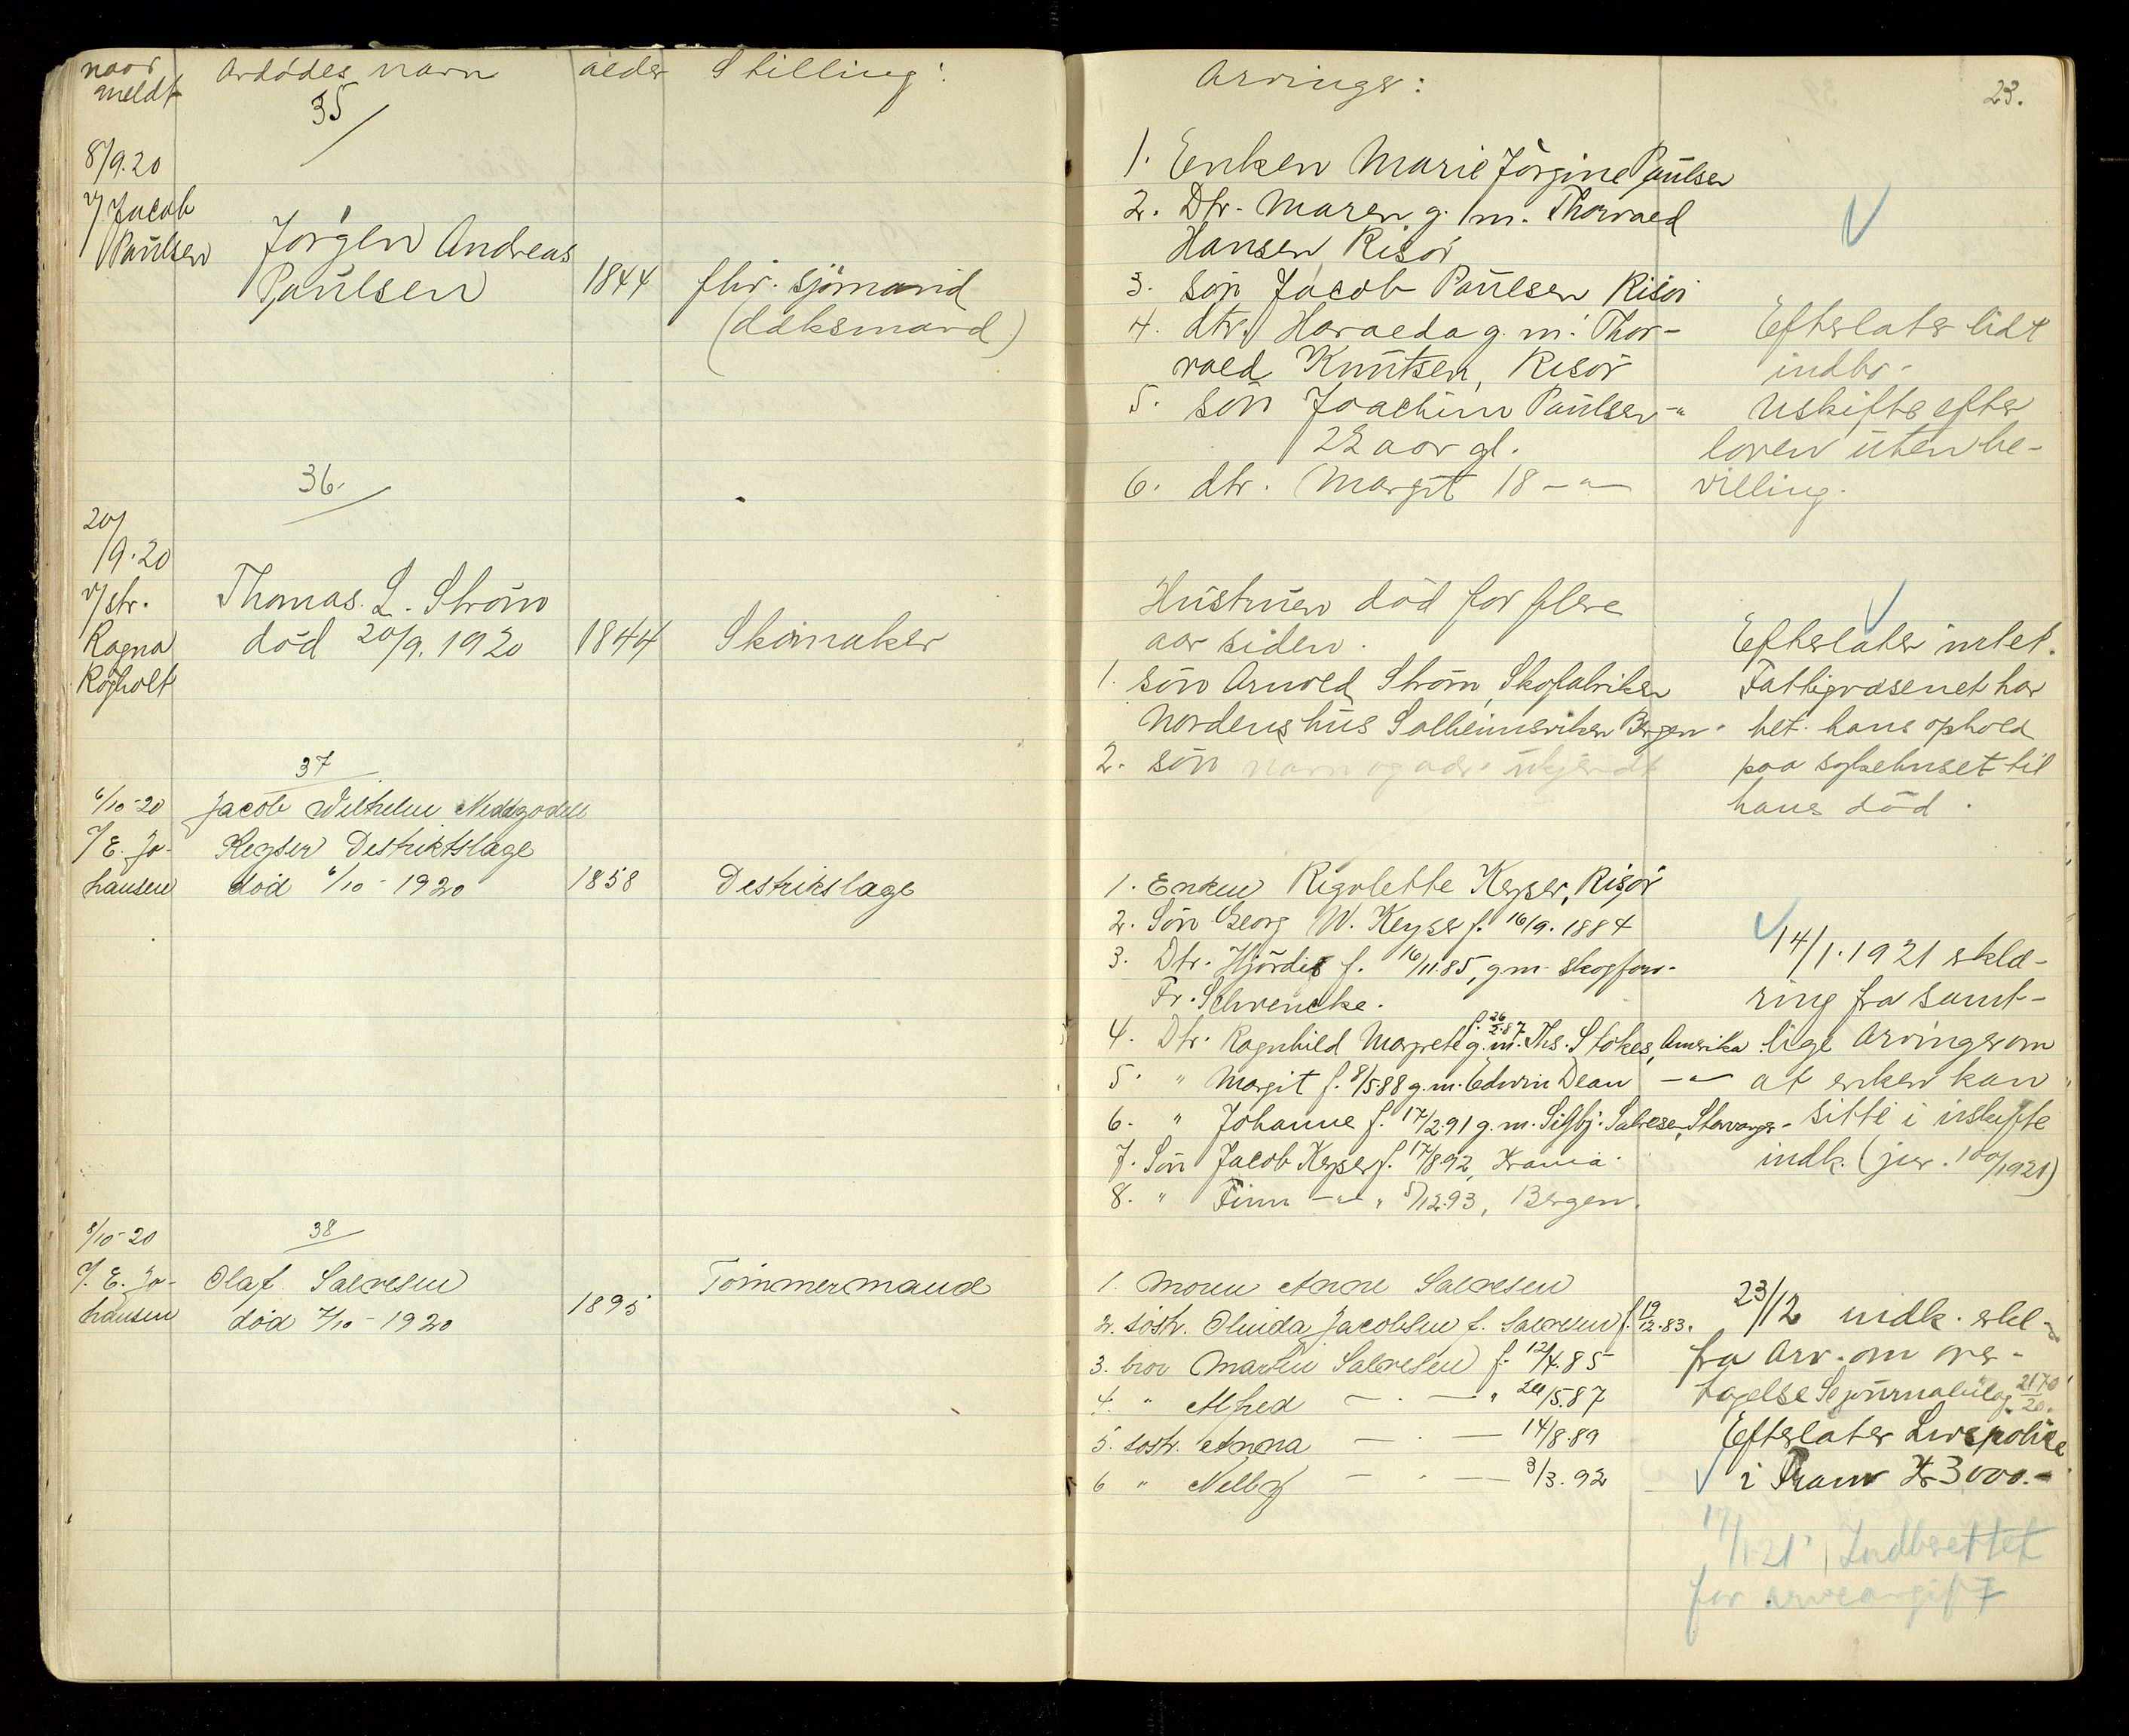 naar meldt
Avdödes navn
alder
Stilling:
35
8/9.20
v/ Jacob
Paulsen
Jørgen Andreas
Paulsen
1844
fhv. sjömand
(dæksmand)
36.
20/
/9.20
v/ str.
Ragna
Röisholt
Thomas. L. Ström
död 20/9. 1920
1844
Skomaker
37
6/10-20
v/ E. Jo-
hansen
Jacob Vilhelm
Keyser Destriktslæge
död 6/10-1920
1858
Destrikslæge
38
8/10-20
v. E. Jo-
hansen
Olaf Salvesen
död 7/10-1920
1895
Tömmermand
Arvinger:
23.
1. Enken Marie Jörgine Paulsen
2. Dtr. Maren g. m. Thorvald
Hansen, Risör
3. sön Jacob Paulsen Risör
4. dtr. Haralda g. m. Thor-
vald Knutsen, Risör
5. sön Joachim Paulsen -"-
22 aar gl.
6. dtr. Margit 18 -"-
Efterlater lidt
indbo-
Uskifte efter
loven uten be-
villing.
Hustruen död for flere
aar siden.
1. sön Arnold Ström, Skofabriken
Nordens hus Solheimsviken Bergen.
2. sön navn og adr. ukjendt
Efterlater intet.
Fattigvæsenet har
bet. hans ophold
paa sykehuset til
hans död.
1. Enken Rigolette Keyser, Risör
2. Sön Georg W. Keyser f. 16/9. 1884
3. Dtr. Hjördis f. 16/11.85, g.m. skogforv.
Fr. Schrencke.
4. Dtr. Ragnhild Margrete f. 26/2.87 g.m. Ths. Stokes, Amerika
5. " Margit f. 8/5.88 g.m. Edwin Dean -"-
6. " Johanne f. 17/2.91 g.m. Sigbj. Salvesen, Stavanger-
7. Sön Jacob Keyser f. 17/8.92, Krania.
8. " Finn -"- " 5/12.93, Bergen.
14/1.1921 erklæ-
ring fra samt-
lige arvinger om
at enken kan
sitte i uskifte
indk. (jnr. 100/1921)
1. Moren Anne Salvesen
2. söstr. Oluida Jacobsen f. Salvesen f. 19/12.83.
3. bror Martin Salvesen f. 12/4.85
4. " Alfred -"- " 20/5.87
5. söstr. Anna -"- 14/8.89
6 " Nelly -"- 3/3.92
23/12 indk. erkl-
fra arv. om over-
tagelse Se journalilag. 2170/20.
Efterlater Livspolise
i Fram Kr 3000.-
17/1-21. Indberettet
for arveavgift